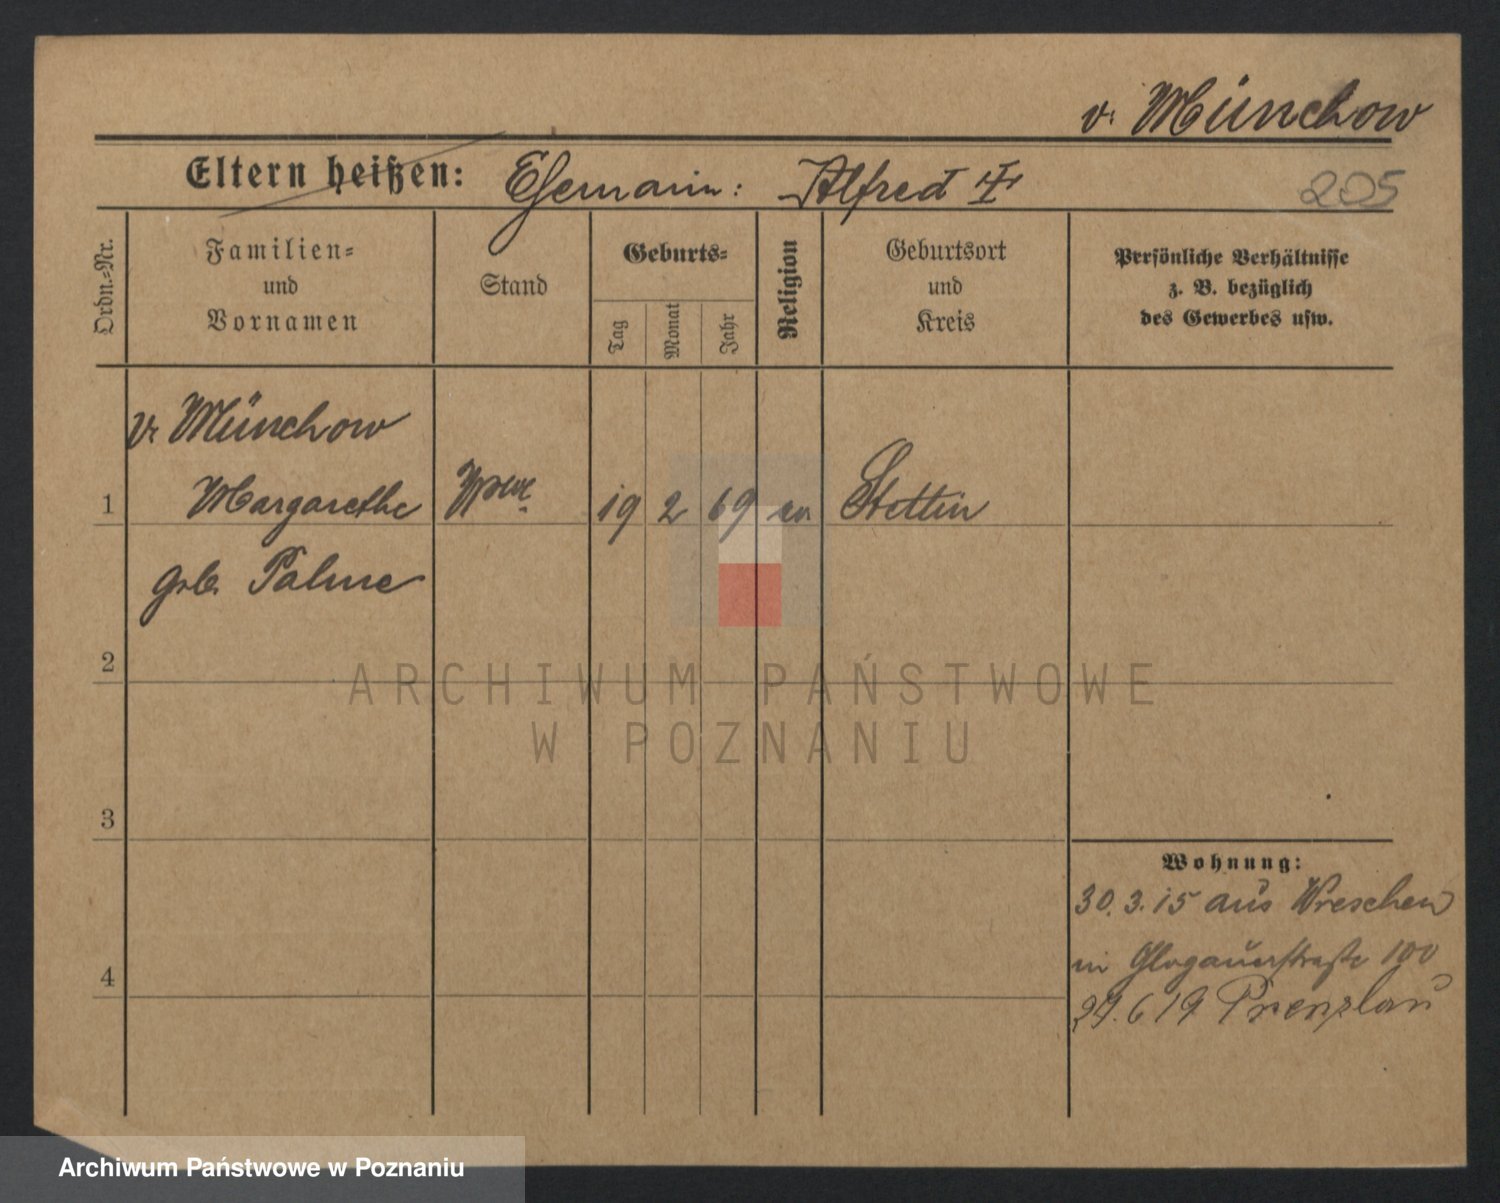 v. Münchow
Eltern heißen: Ehemann: Alfred ‡
205
Ordn.-Nr.
Familien-
und
Vornamen
Stand
Geburts-
Tag
Monat
Jahr
Religion
Geburtsort
und
Kreis
Persönliche Verhältnisse
z. B. bezüglich
des Gewerbes usw.
v. Münchow
1 Margarethe Wwe. 19 2 69 ev. Stettin
geb. Palme
2
3
4
Wohnung:
30.3.15 aus Wreschen
in Glogauerstraße 100
24.6 19 Prenzlau
ARCHIWUM PAŃSTWOWE
W POZNANIU
Archiwum Państwowe w Poznaniu